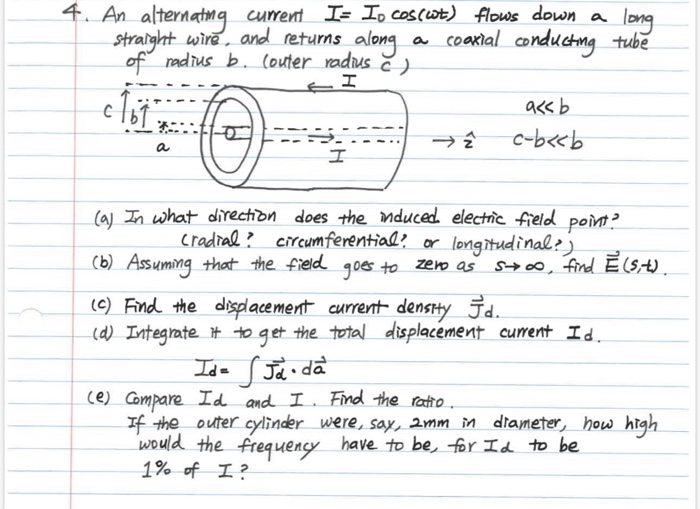 4. An alternating current I = I₀ cos(ωt) flows down a long
straight wire, and returns along a coaxial conducting tube
of radius b. (outer radius c)
← I
c b
a
→ I
→ ẑ
a<<b
c-b<<b
(a) In what direction does the induced electric field point?
(radial? circumferential? or longitudinal?)
(b) Assuming that the field goes to zero as s→∞, find E⃗(s,t).
(c) Find the displacement current density J⃗d.
(d) Integrate it to get the total displacement current Id.
Id = ∫ J⃗d · da⃗
(e) Compare Id and I. Find the ratio.
If the outer cylinder were, say, 2mm in diameter, how high
would the frequency have to be, for Id to be
1% of I?